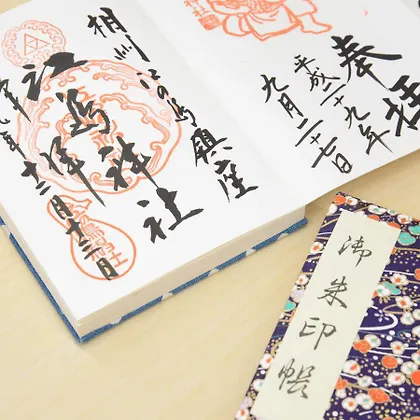 奉拝
平成二十九年
九月二十七日
相州江の島鎮座
江嶋神社
十二月十三日
御朱印帳